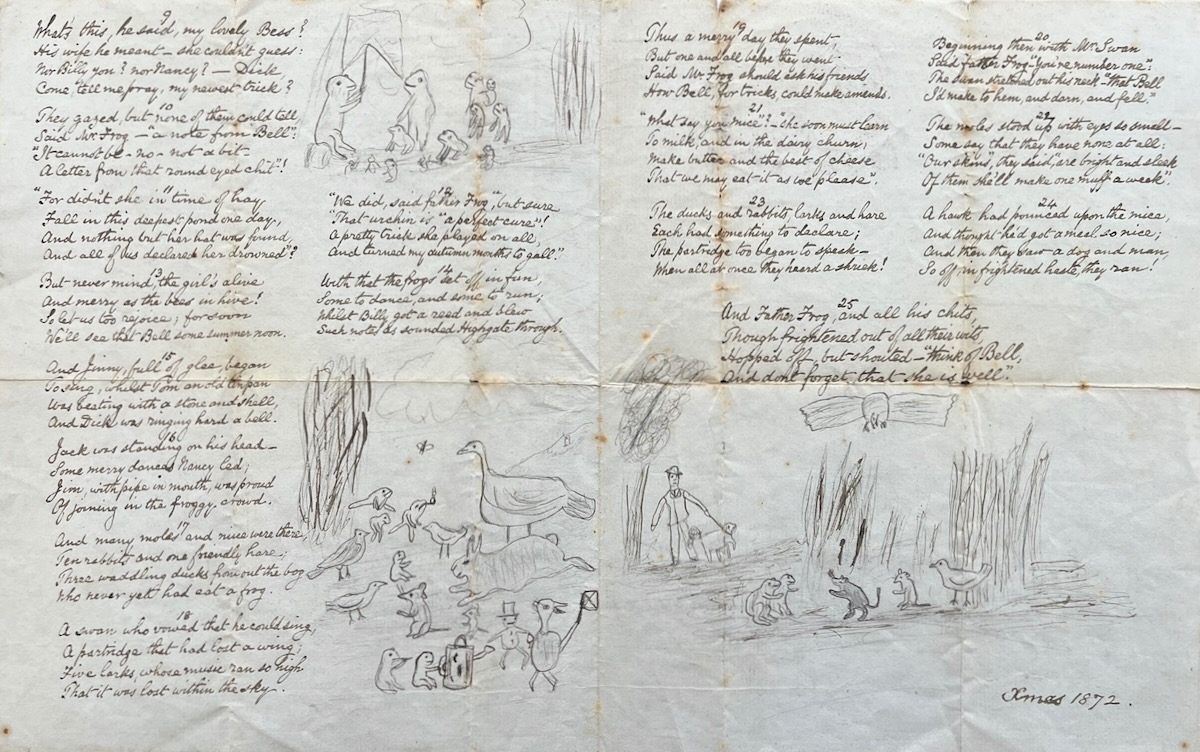 9
What's this, he said, my lovely Bess?
His wife he meant – she couldn't guess:
Nor Billy you? nor Nancy? – Dick
Come, tell me pray, my newest trick?
10
They gazed, but none of them could tell,
Said Mr. Frog – "a note from Bell".
"It cannot be – no – not a bit –
A letter from that round eyed chit"!
11
"For didn't she in time of hay,
Fall in this deepest pond one day,
And nothing but her hat was found,
And all of us declared her drowned"?
12
"We did, said father Frog", but sure
"That urchin is "a perfect cure"!
A pretty trick she played on all,
And turned my autumn months to gall."
13
But never mind, the girl's alive
And merry as the bees in hive!
So let us too rejoice; for soon
We'll see that Bell some summer noon.
14
With that the frogs set off in fun,
Some to dance, and some to run;
Whilst Billy got a reed and blew
Such notes as sounded Highgate through.
15
And Jinny, full of glee, began
To sing, whilst Tom an old tin pan
Was beating with a stone and shell,
And Dick was ringing hard a bell.
16
Jack was standing on his head –
Some merry dances Nancy led;
Jim, with pipe in mouth, was proud
Of joining in the froggy crowd.
17
And many moles and mice were there,
Ten rabbits and one friendly hare;
Three waddling ducks from out the bog
Who never yet had eat a frog.
18
A swan who vowed that he could sing,
A partridge that had lost a wing;
Five larks, whose music ran so high
That it was lost within the sky.
19
Thus a merry day they spent,
But one and all before they went
Said Mr. Frog should ask his friends
How Bell, for tricks, could make amends.
20
Beginning then with Mr. Swan
Said Father Frog "You're number one":
The swan stretched out his neck – "That Bell
I'd make to hem, and darn, and fell."
21
"What say you mice"? – "She soon must learn
To milk, and in the dairy churn;
Make butter and the best of cheese
That we may eat it as we please".
22
The moles stood up with eyes so small –
Some say that they have none at all:
"Our skins", they said, "are bright and sleek
Of them she'll make one muff a week".
23
The ducks and rabbits, larks and hare
Each had something to declare;
The partridge too began to speak –
When all at once they heard a shriek!
24
A hawk had pounced upon the mice,
And thought he'd got a meal so nice;
And then they saw a dog and man,
So off in frightened haste, they ran!
25
And Father Frog, and all his chits,
Though frightened out of all their wits
Hopped off, but shouted – "think of Bell,
And dont forget, that she is well".
Xmas 1872.